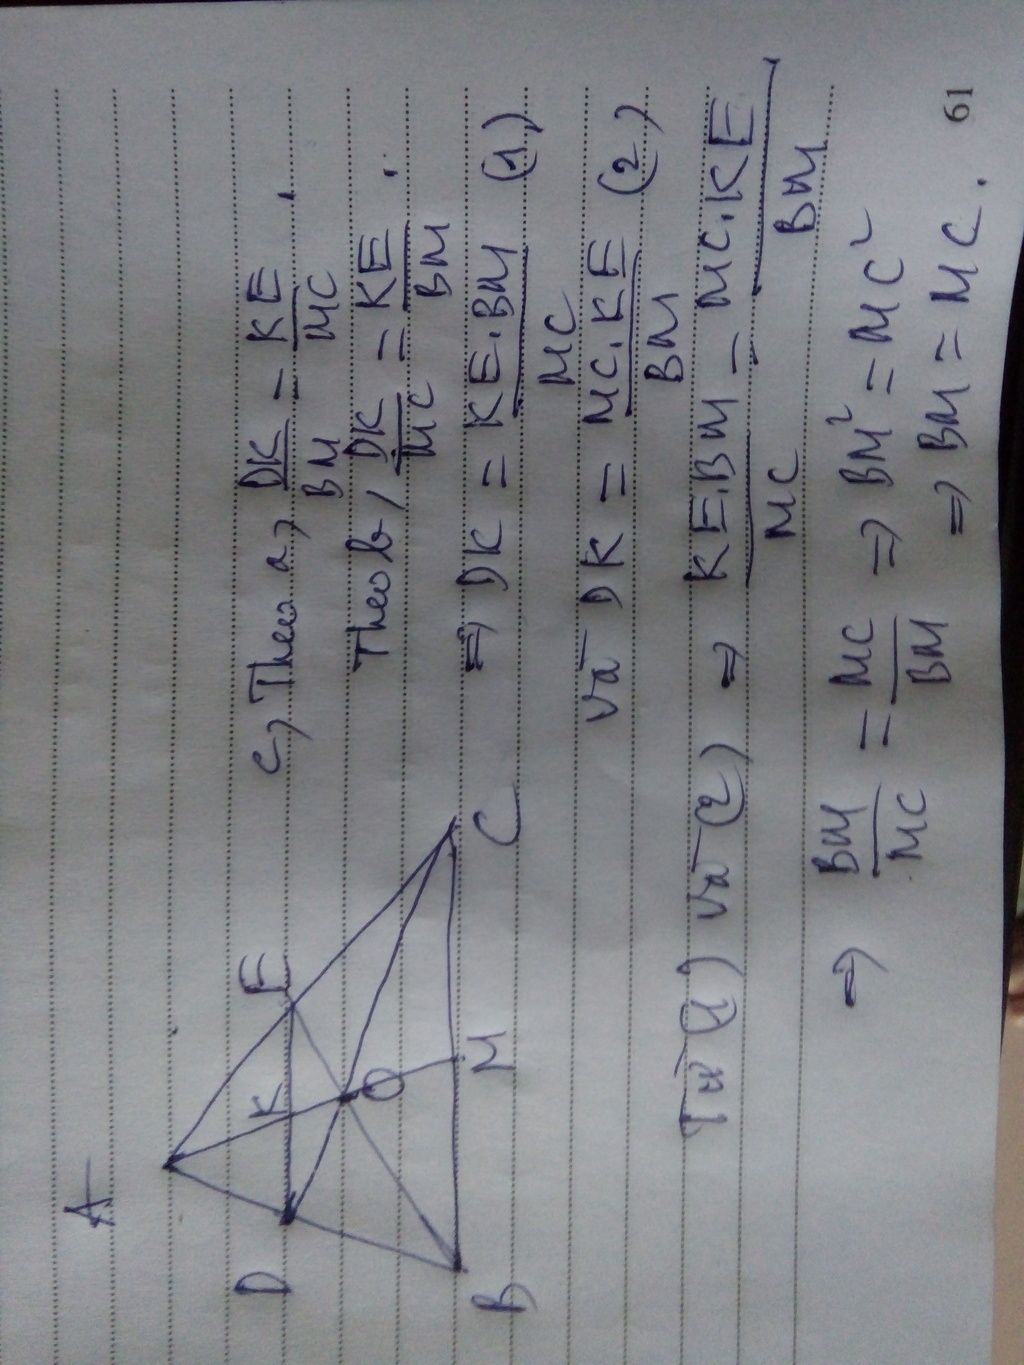 A
D K E
O
B M C
c, Theo a, DK/BM = KE/MC.
Theo b, DK/MC = KE/BM.
⇒ DK = KE.BM/MC (1)
và DK = MC.KE/BM (2)
Từ (1) và (2) ⇒ KE.BM/MC = MC.KE/BM
⇒ BM/MC = MC/BM ⇒ BM² = MC²
⇒ BM = MC.
61